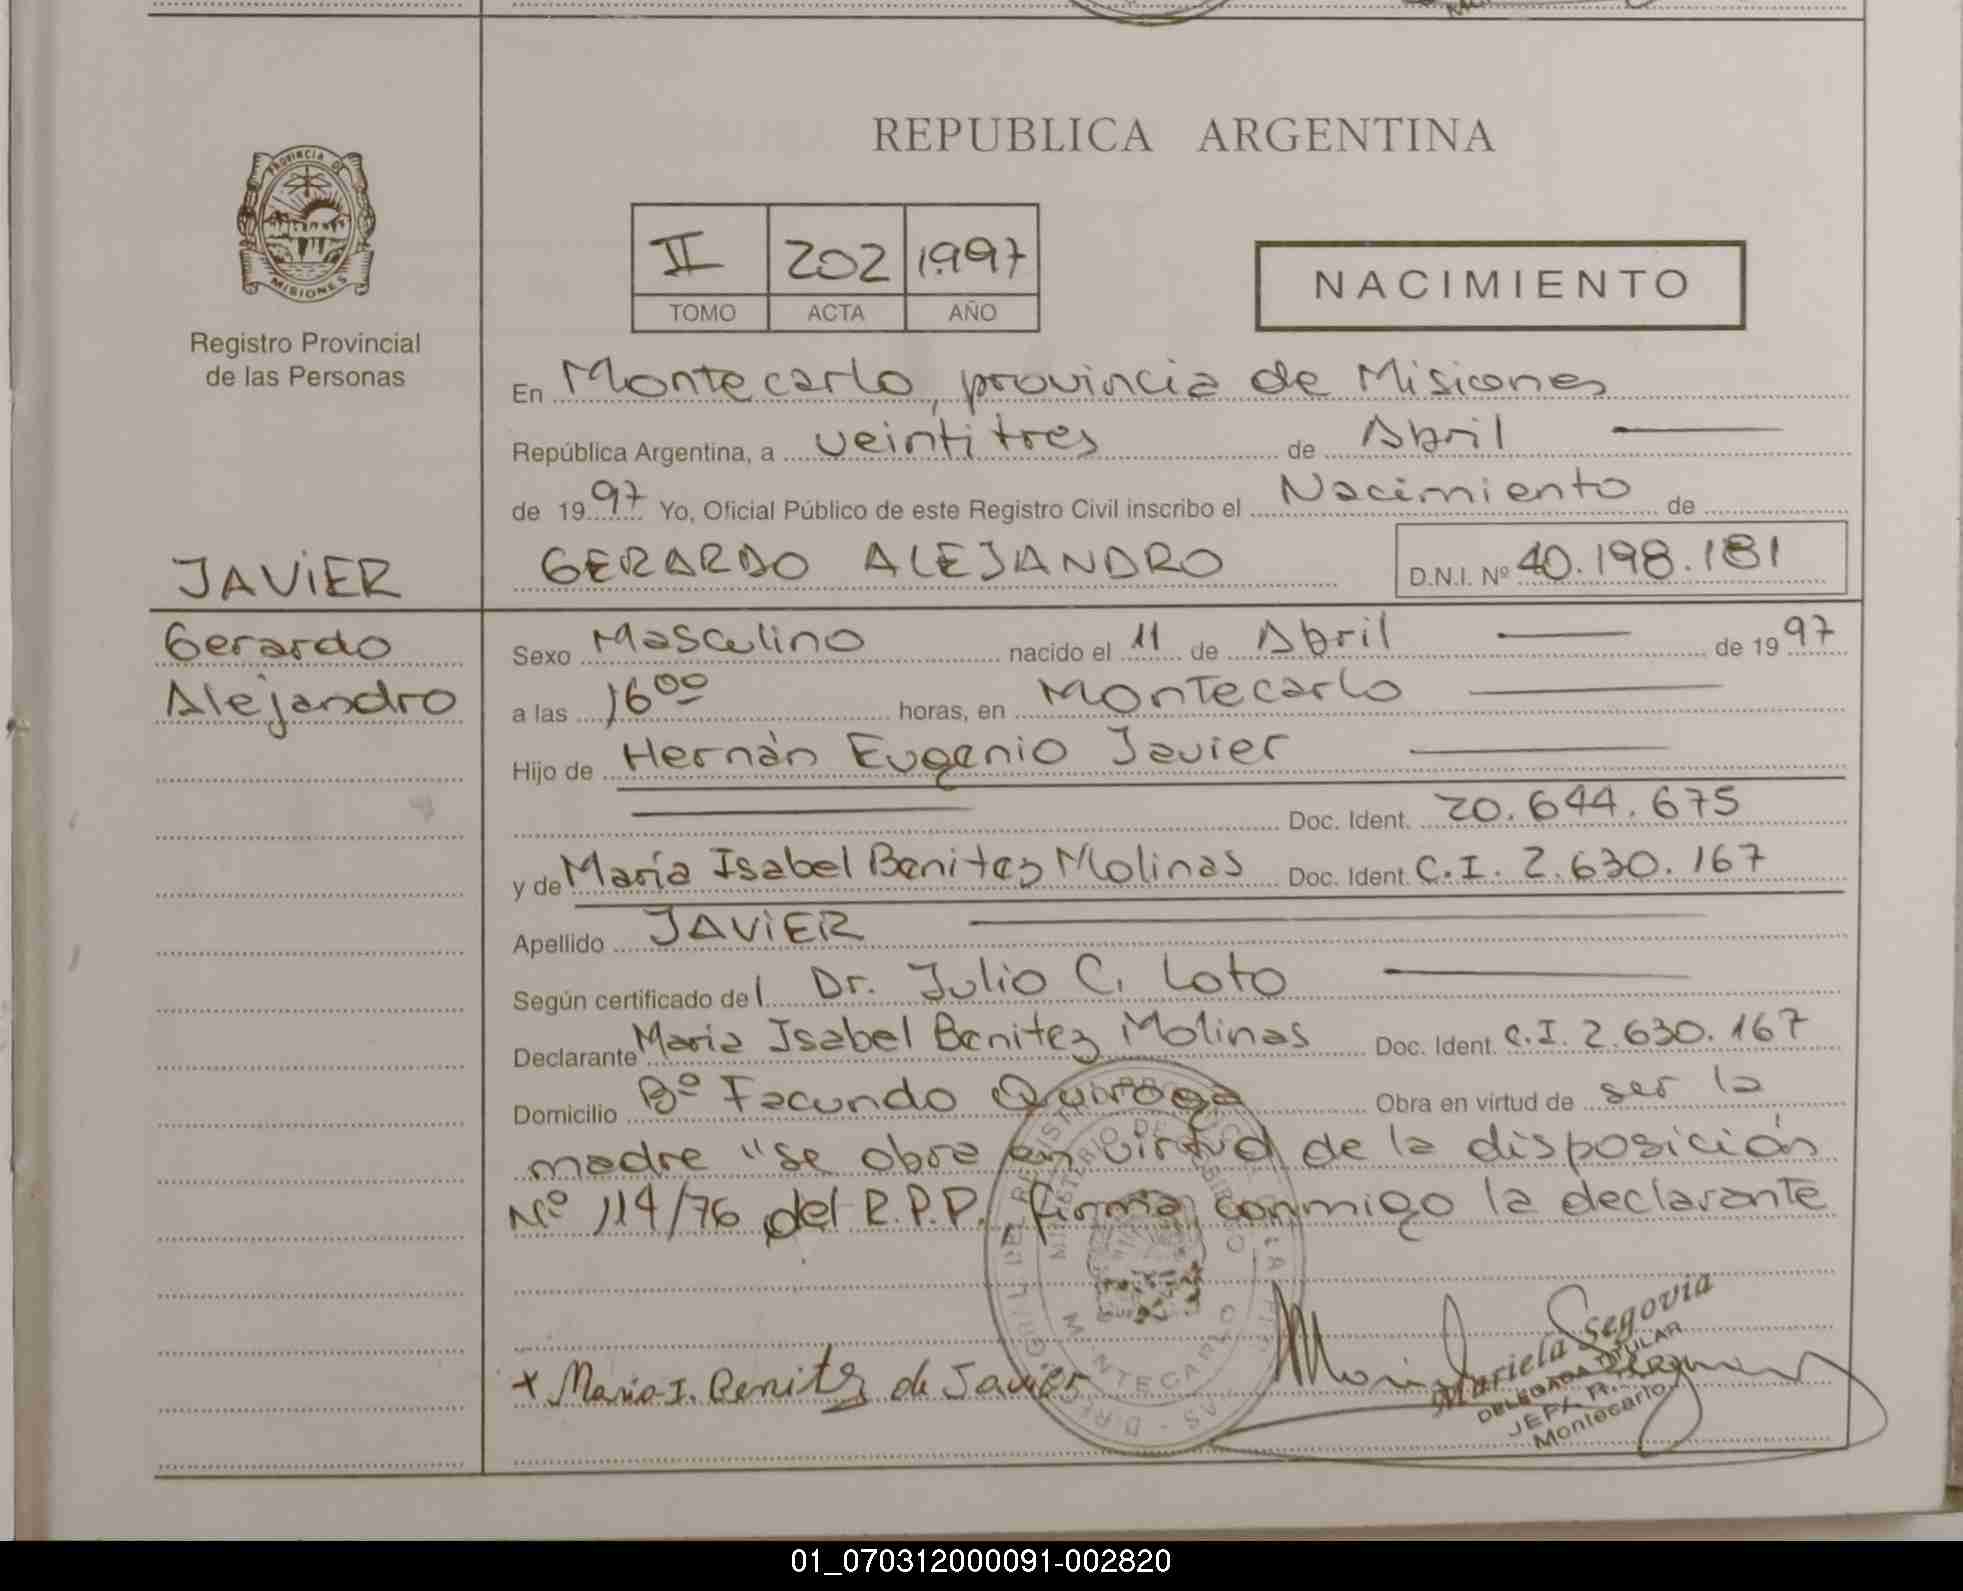 REPUBLICA ARGENTINA
PROVINCIA DE
MISIONES
Registro Provincial
de las Personas
II 202 1997
TOMO ACTA AÑO
NACIMIENTO
En Montecarlo, provincia de Misiones
República Argentina, a veintitres de Abril
de 1997 Yo, Oficial Público de este Registro Civil inscribo el Nacimiento de
JAVIER
GERARDO ALEJANDRO D.N.I. Nº 40.198.181
Gerardo
Alejandro
Sexo Masculino nacido el 11 de Abril de 1997
a las 16ºº horas, en Montecarlo
Hijo de Hernán Eugenio Javier
Doc. Ident. 20.644.675
y de María Isabel Benitez Molinas Doc. Ident. C.I. 2.630.167
Apellido JAVIER
Según certificado del Dr. Julio C. Loto
Declarante Maria Isabel Benitez Molinas Doc. Ident. C.I. 2.630.167
Domicilio Bº Facundo Quiroga Obra en virtud de ser la
madre "se obra en virtud de la disposición
Nº 114/76 del R.P.P. firma conmigo la declarante
+ Maria I. Benitez de Javier
Mariela Segovia
DELEGADA TITULAR
Montecarlo
MONTECARLO
01_070312000091-002820